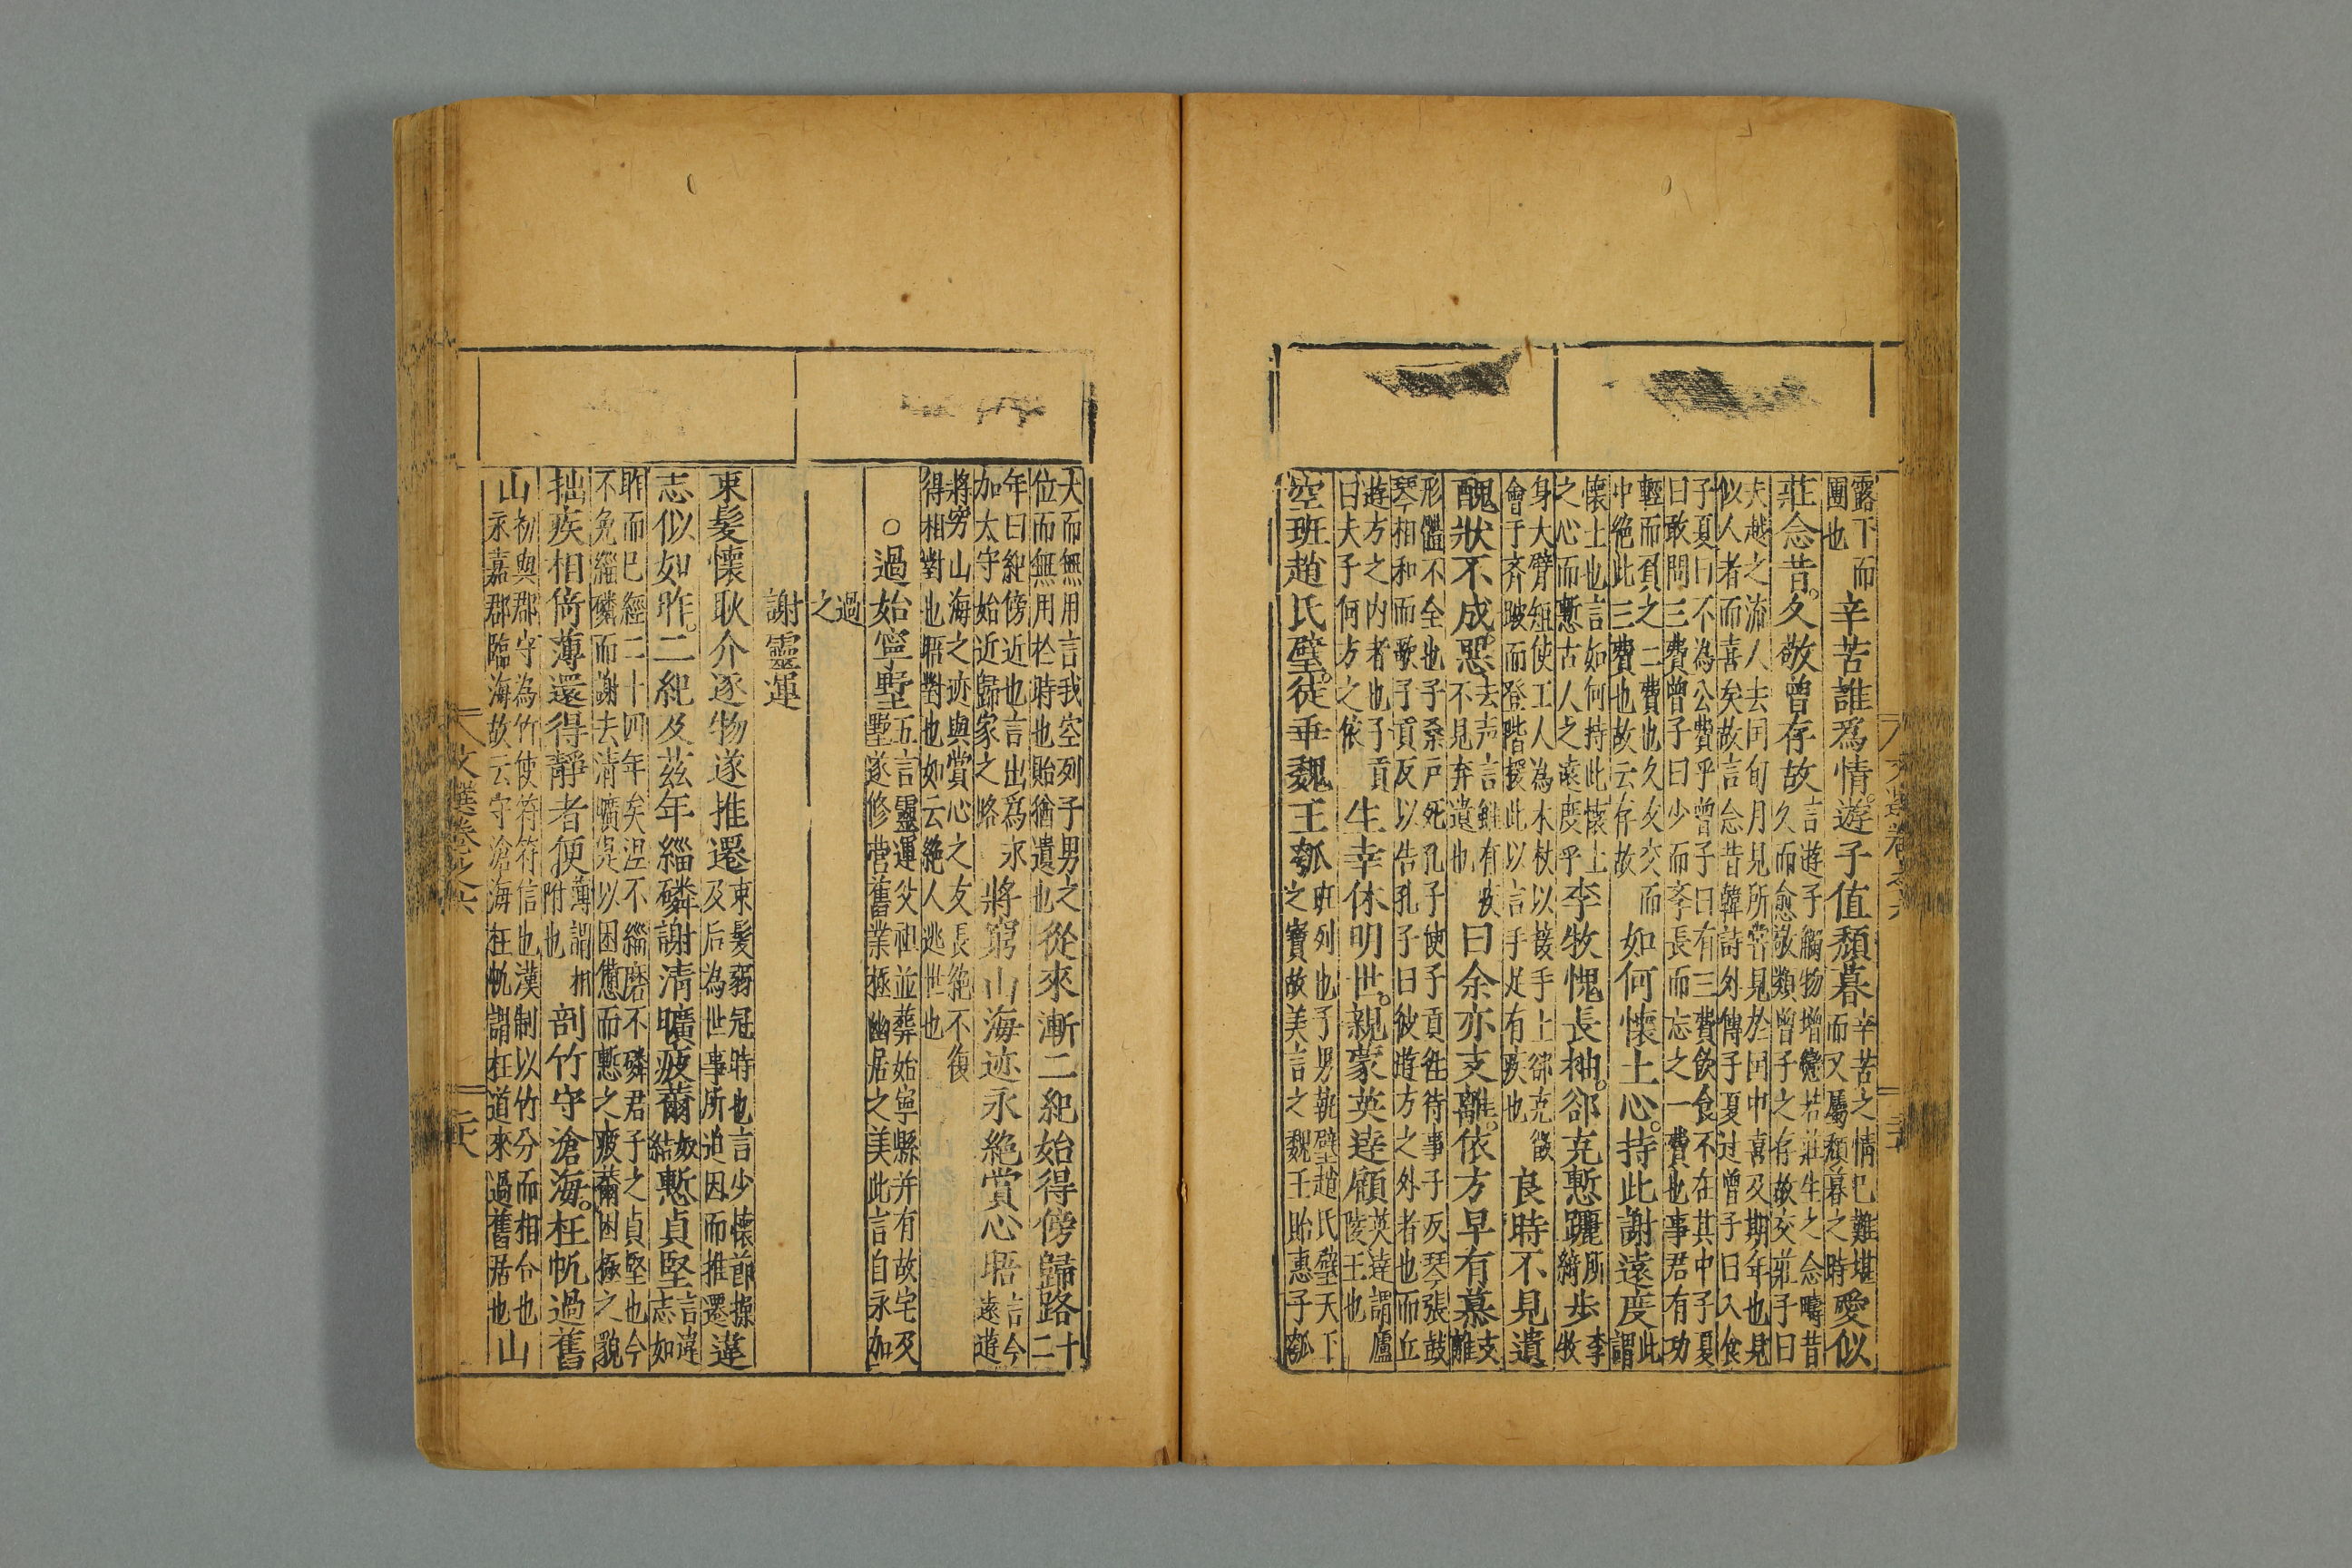 露下而
團也
辛苦誰爲情遊子值頹暮
辛苦之情已難堪
而又屬頹暮之時
愛似
莊念昔久敬曾存故
言遊子觸物增戀若莊生之念疇昔
久而愈敬類曾子之存故交莊子曰
夫越之流人去囯旬月見所嘗見於囯中喜及期年也見
似人者而喜矣故言念昔韓詩外傳子夏过曾子曰入食
子夏曰不為公費乎曾子曰有三費飲食不在其中子夏
曰敢問三費曾子曰少而孝長而忘之一費也事君有功
輕而負之二費也久友交而
中絶此三費也故云存故
如何懷土心持此謝遠度
此
謂
懷土也言如何持此懷土
之心而慙古人之遠度乎
李牧愧長袖郤克慙躧步
所李
綺牧
身大臂短使工人為木杖以接手上郤克䠊
會于齐跛而登階援此以言手足有疾也
良時不見遺
醜狀不成惡
去声言雖有疾
不見弃遺也
曰余亦支離依方早有慕
支
離
形體不全也子桑戸死孔子使子貢徃待事子反琴張鼓
琴相和而歌子貢反以告孔子曰彼遊方之外者也而丘
遊方之内者也子貢
曰夫子何方之依
生幸休明世親蒙英達顧
英達謂廬
陵王也
空班趙氏璧徒乖魏王瓠
班列也子男執璧趙氏璧天下
之寳故美言之魏王貽惠子瓠
大而無用言我空列子男之
位而無用於時也貽猶遺也
從來漸二紀始得傍歸路
十
二
年曰紀傍近也言出爲永
加太守始近歸家之路
將窮山海迹永絶賞心晤
言今
遠遊
將穷山海之迹與賞心之友長絶不復
得相對也晤對也如云絶人逃世也
○過始寧墅
五言靈運父祖並葬始寧縣并有故宅及
墅遂修营舊業極幽居之美此言自永加
過
之
謝靈運
束髪懷耿介逐物遂推遷
束髪弱冠時也言少懷節操
及后為世事所迫因而推遷
違
志似如昨二紀及茲年緇磷謝清曠疲薾
奴
結
慙貞堅
言違
志如
昨而已經二十四年矣涅不緇磨不磷君子之貞堅也今
不免緇磷而謝去清曠吴以困憊而慙之疲薾困極之貌
拙疾相倚薄還得靜者便
薄謂相
附也
剖竹守滄海枉帆過舊
山
初與郡守為竹使符符信也漢制以竹分而相合也
永嘉郡臨海故云守滄海枉帆謂枉道來過舊居也
山
文選卷之六